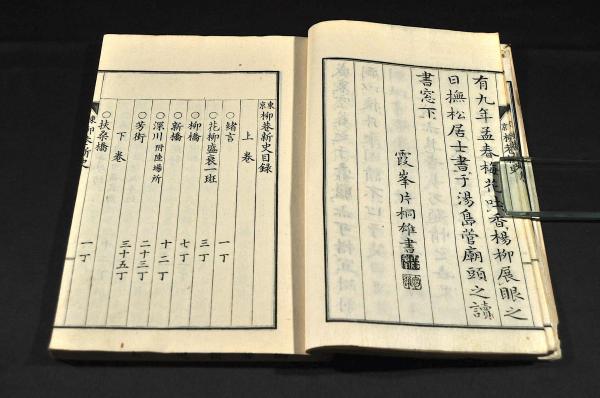 有九年孟春梅花吐香楊柳展眼之
日撫松居士書于湯島菅廟頭之讀
書窓下
霞峯片桐雄書
東京柳巷新史目録
上巻
○緒言 一丁
○花柳盛衰一斑 三丁
○柳橋 七丁
○新橋 十二丁
○深川 附陸場所 二十三丁
○芳街 三十五丁
下巻
○扶桑橋 一丁
東京柳巷新史